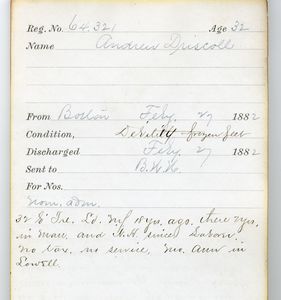 Reg. No. 64,321 Age 32
Name Andrew Driscoll
From Boston Feby. 27 1882
Condition, Debility frozen feet
Discharged Feby. 27 1882
Sent to
For Nos.
32 S. Ire. Ld. 18 yrs. ago. there 2 yrs.
in Man. and N.H. since
no tax. no service. mo. Ann in
Lowell.